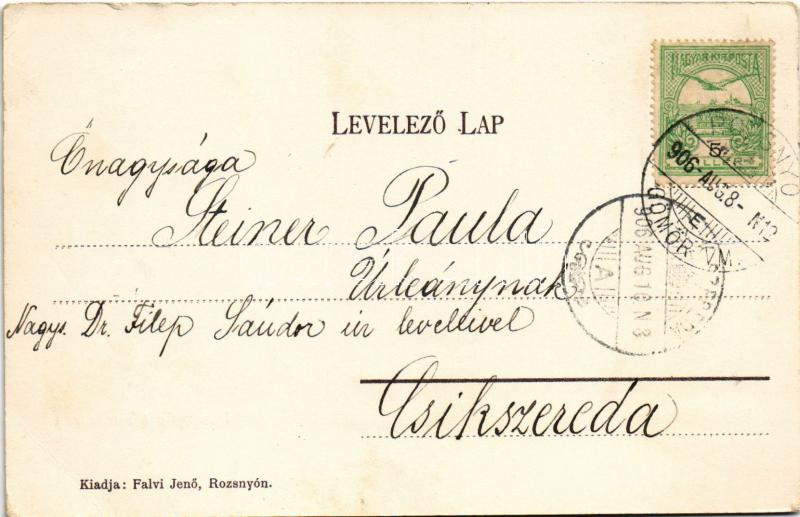 MAGYAR KIR. POSTA
LEVELEZŐ LAP
Őnagysága
Steiner Paula
Úrleánynak
Nagys. Dr. Filep Sándor úr levelével
Csikszereda
Kiadja: Falvi Jenő, Rozsnyón.
906 AUG. 8 - N12
GÖMÖR V.M.
E
906 AUG 10 N 8
A